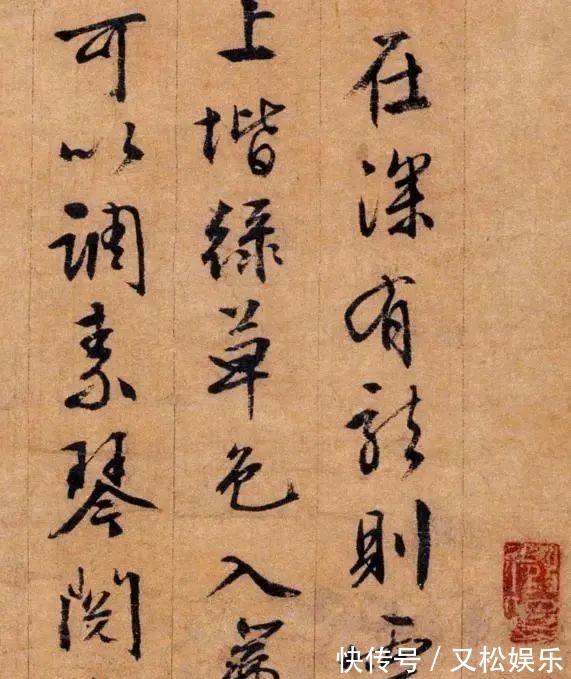 在深有龍則靈
上堦綠草色入簾
可以調素琴閱
快传号/又松娱乐